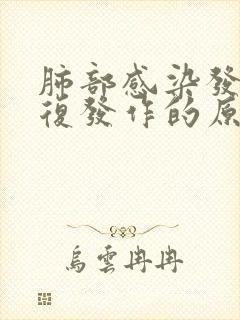 肺部感染發
復發作的原
烏雲冉冉